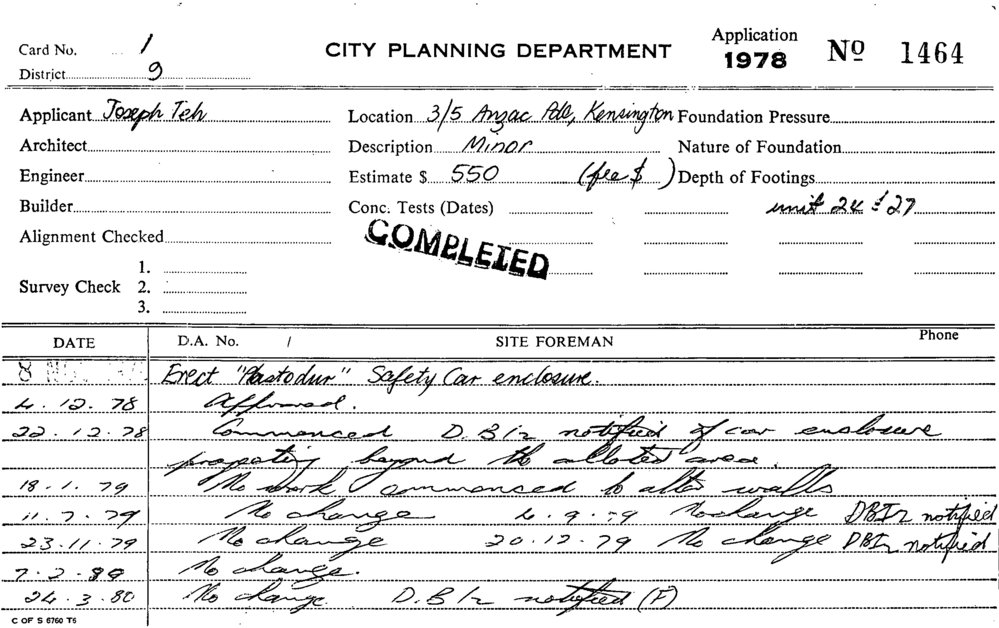 Card No. 1
CITY PLANNING DEPARTMENT
Application
1978 No 1464
District 9
Applicant Joseph Teh
Location 3/5 Anzac Pde, Kensington
Foundation Pressure
Architect
Description Minor
Nature of Foundation
Engineer
Estimate $ 550 (fee $ )
Depth of Footings
Builder
Conc. Tests (Dates)
unit 24 & 27
Alignment Checked
COMPLETED
Survey Check 1.
2.
3.
DATE D.A. No. / SITE FOREMAN Phone
8 NOV Erect "Plastodur" Safety Car enclosure.
4.12.78 Approved.
22.12.78 Commenced D.B Ir notified of car enclosure
projecting beyond the alloted area.
18.1.79 No work commenced to alter walls
11.7.79 No change 4.9.79 No change DBIr notified
23.11.79 No change 20.12.79 No change DBIr notified
7.2.80 No change.
24.3.80 No change. D.B Ir notified (F)
C OF S 6760 T6